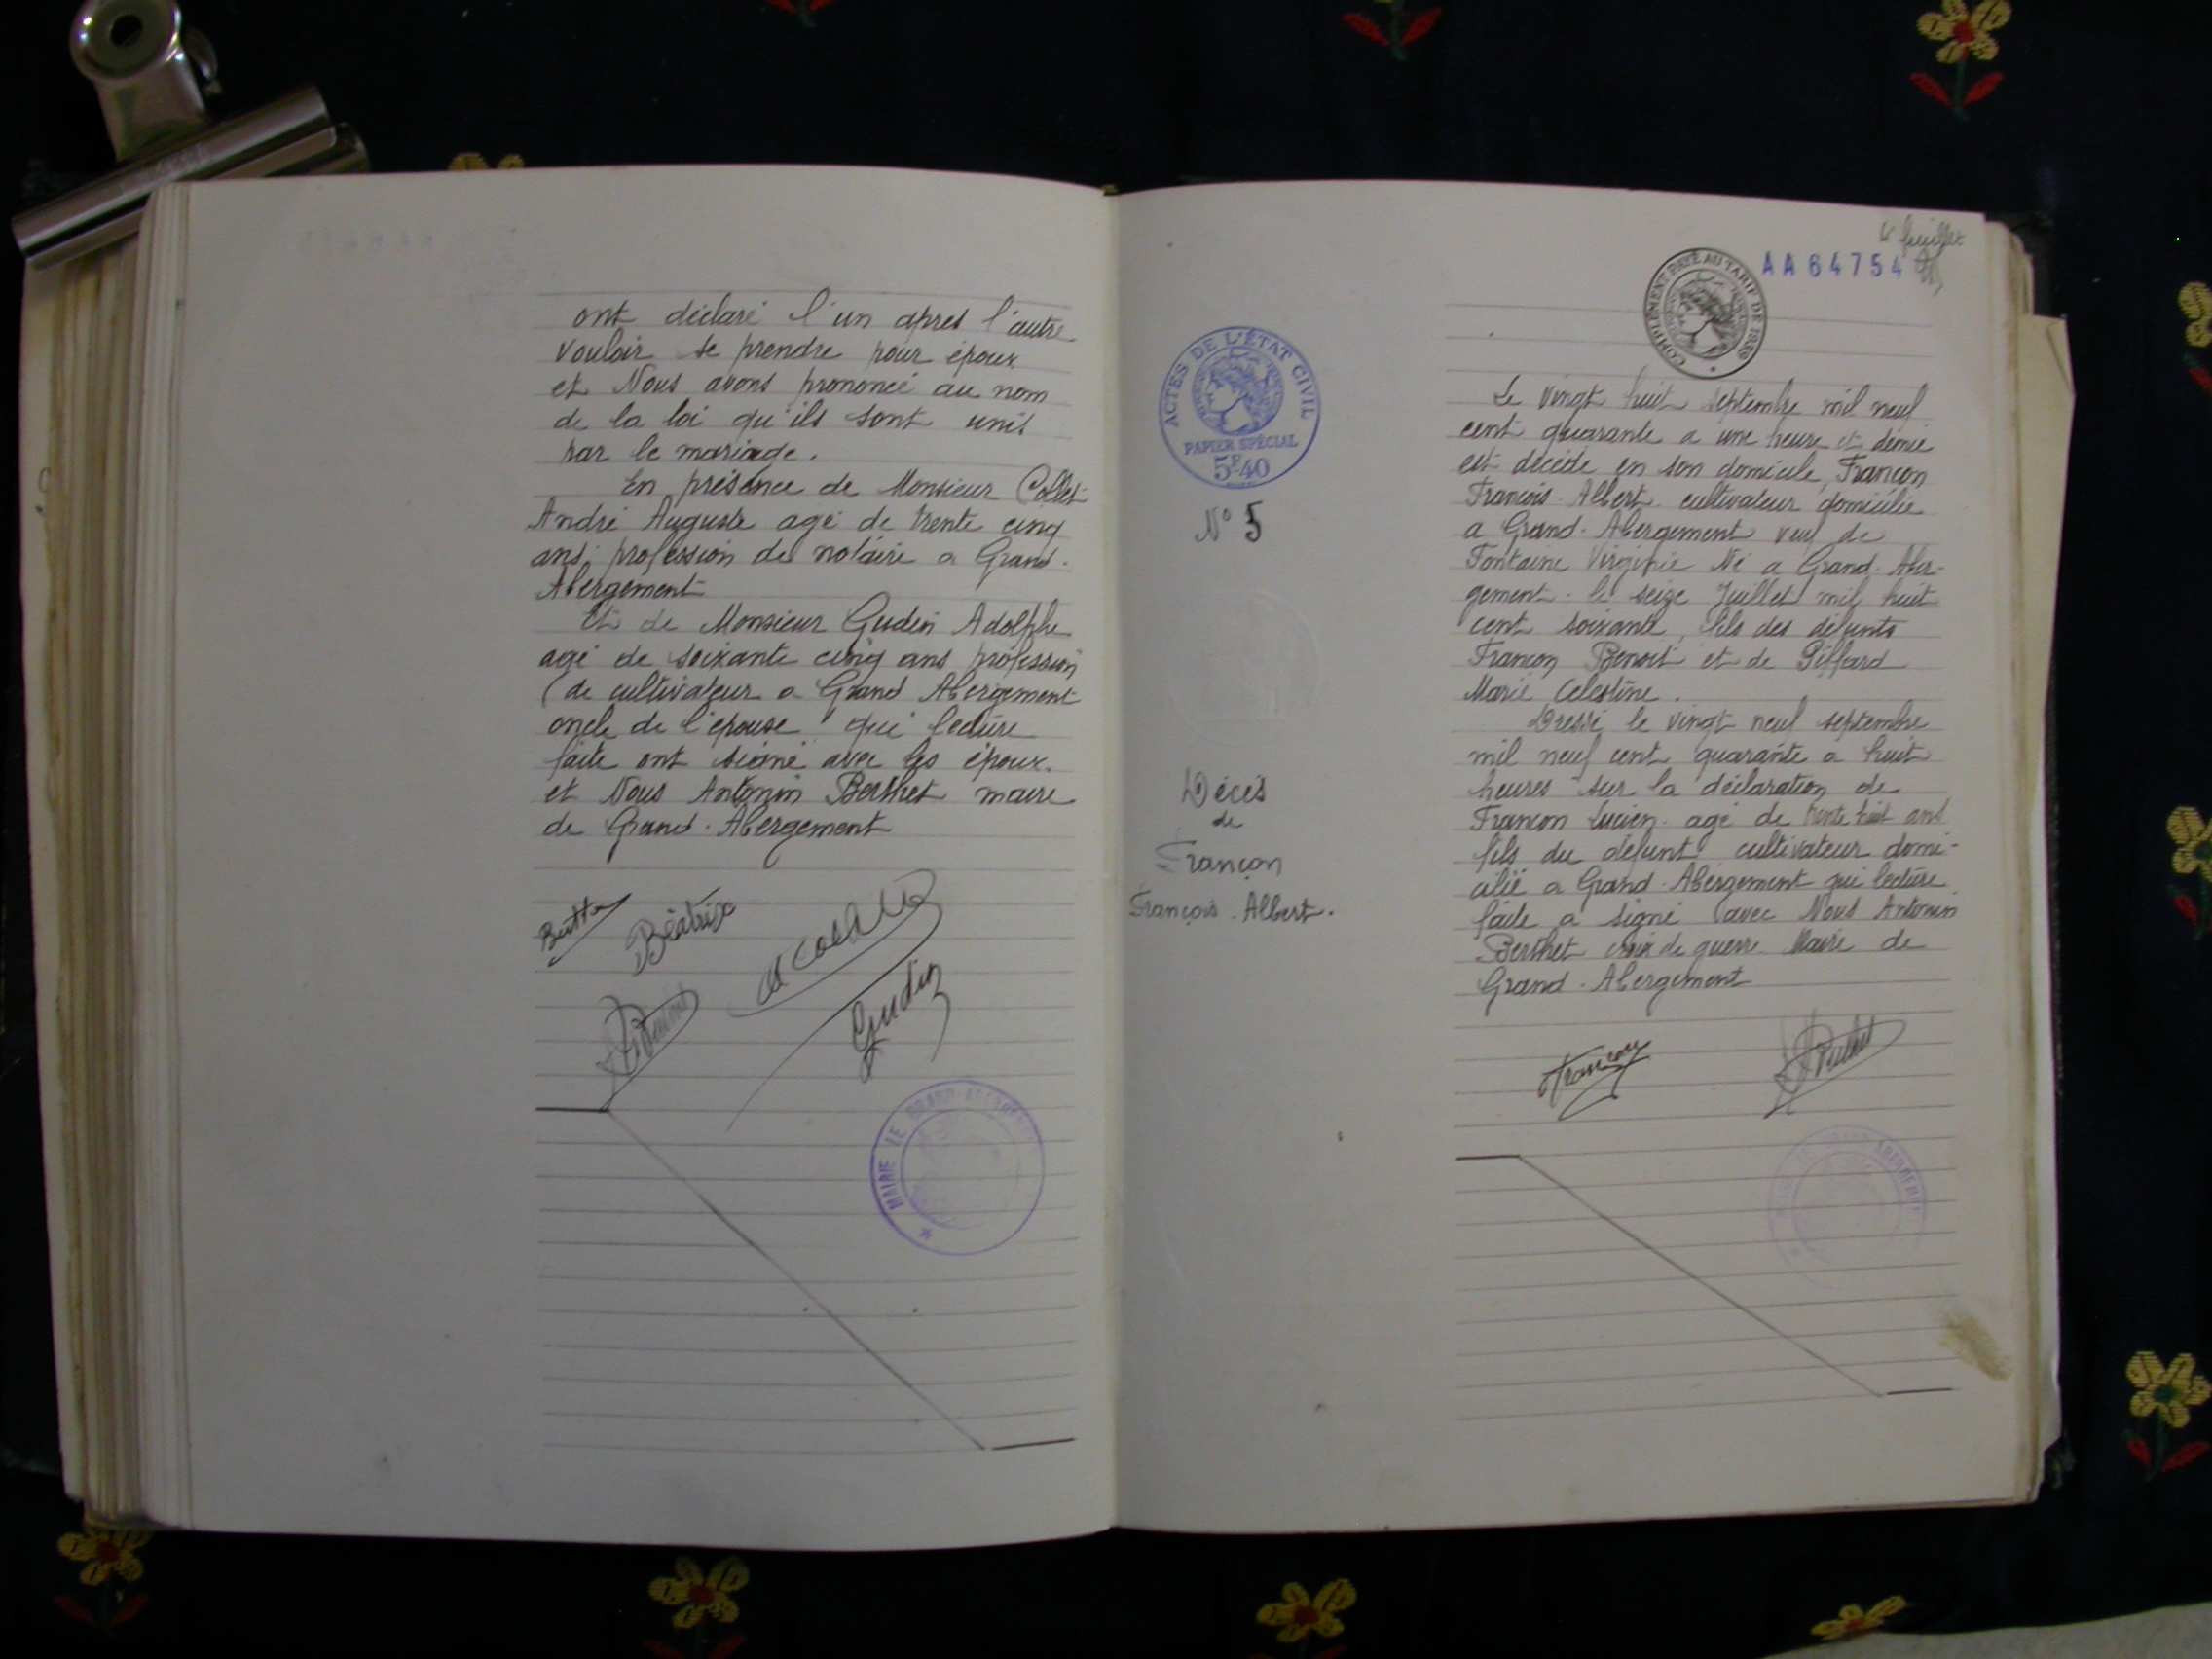 ont déclaré l'un apres l'autre
vouloir se prendre pour époux
et Nous avons prononcé au nom
de la loi qu'ils sont unis
par le mariage.
En présence de Monsieur Collet
André Auguste agé de trente cinq
ans, profession de notaire a Grand-
Abergement
Et de Monsieur Gudin Adolphe
agé de soixante cinq ans profession
de cultivateur a Grand Abergement
oncle de l'épouse qui lecture
faite ont signé avec les époux
et Nous Antonin Berthet maire
de Grand-Abergement
Béatrix
Gudin
MAIRIE LE GRAND ABERGEMENT
ACTES DE L'ÉTAT CIVIL
PAPIER SPÉCIAL
5F40
N° 5
Décès
de
Françon
François-Albert.
feuillet
AA64754
COMPLEMENT PAYÉ AU TARIF DE
Le vingt huit septembre mil neuf
cent quarante a une heure et demie
est décédé en son domicile, Françon
François-Albert cultivateur domicilié
a Grand-Abergement veuf de
Fontaine Virginie Né a Grand-Aber-
gement le seize Juillet mil huit
cent soixante, fils des défunts
Françon Benoit et de Piffard
Marie Celestine.
Dressé le vingt neuf septembre
mil neuf cent quarante a huit
heures sur la déclaration de
Françon Lucien agé de trente huit ans
fils du défunt cultivateur domi-
cilié a Grand-Abergement qui lecture
faite a signé avec Nous Antonin
Berthet croix de guerre Maire de
Grand-Abergement
Françon
ABERGEMENT